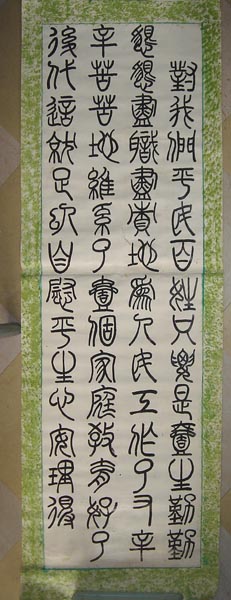 對我們平民百姓只要是壹生勤勤
懇懇盡職盡責地為人民工作了又辛
辛苦苦地維系了壹個家庭教育好了
後代這就足以自慰平生心安理得